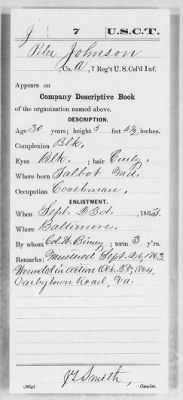 J 7 U.S.C.T.
Peter Johnson
Co. A, 7 Reg't U.S. Col'd Inf.
Appears on
Company Descriptive Book
of the organization named above.
DESCRIPTION.
Age 30 years; height 5 feet inches.
Complexion Blk.
Eyes Blk.; hair Curly.
Where born Talbot Md.
Occupation Coachman.
ENLISTMENT.
When Sept. 23d., 1863.
Where Baltimore.
By whom Col. W. Birney; term 3 y'rs.
Remarks: Mustered Sept. 26, 1863
Wounded in action Oct. 28, 1864,
Darbytown Road, Va.
J Smith,
Copyist.